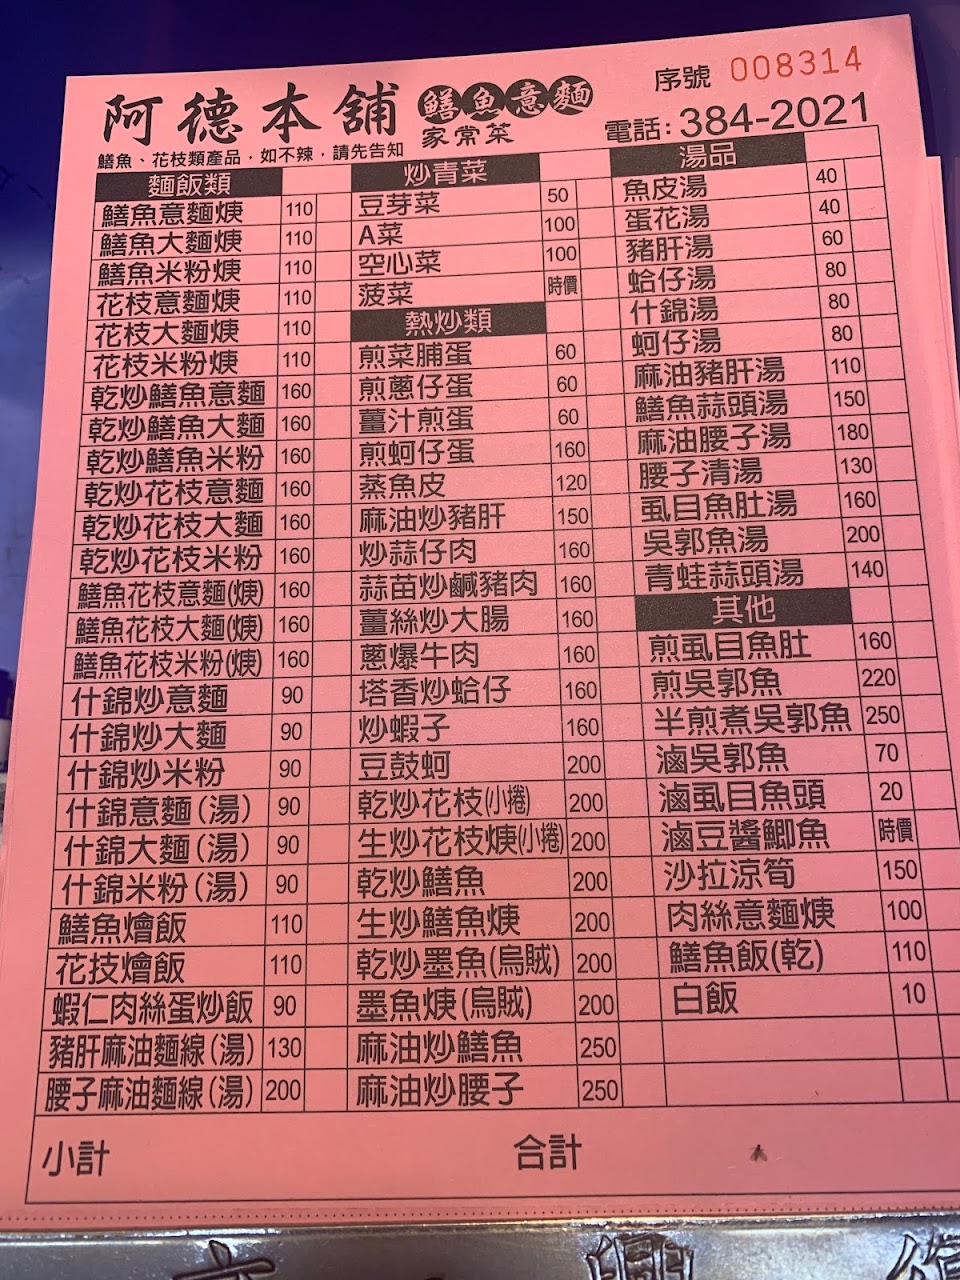 序號 008314
阿德本舖 鱔魚意麵
家常菜
電話: 384-2021
鱔魚、花枝類產品,如不辣,請先告知
麵飯類
鱔魚意麵焿 110
鱔魚大麵焿 110
鱔魚米粉焿 110
花枝意麵焿 110
花枝大麵焿 110
花枝米粉焿 110
乾炒鱔魚意麵 160
乾炒鱔魚大麵 160
乾炒鱔魚米粉 160
乾炒花枝意麵 160
乾炒花枝大麵 160
乾炒花枝米粉 160
鱔魚花枝意麵(焿) 160
鱔魚花枝大麵(焿) 160
鱔魚花枝米粉(焿) 160
什錦炒意麵 90
什錦炒大麵 90
什錦炒米粉 90
什錦意麵(湯) 90
什錦大麵(湯) 90
什錦米粉(湯) 90
鱔魚燴飯 110
花技燴飯 110
蝦仁肉絲蛋炒飯 90
豬肝麻油麵線(湯) 130
腰子麻油麵線(湯) 200
炒青菜
豆芽菜 50
A菜 100
空心菜 100
菠菜 時價
熱炒類
煎菜脯蛋 60
煎蔥仔蛋 60
薑汁煎蛋 60
煎蚵仔蛋 160
蒸魚皮 120
麻油炒豬肝 150
炒蒜仔肉 160
蒜苗炒鹹豬肉 160
薑絲炒大腸 160
蔥爆牛肉 160
塔香炒蛤仔 160
炒蝦子 160
豆鼓蚵 200
乾炒花枝(小捲) 200
生炒花枝焿(小捲) 200
乾炒鱔魚 200
生炒鱔魚焿 200
乾炒墨魚(烏賊) 200
墨魚焿(烏賊) 200
麻油炒鱔魚 250
麻油炒腰子 250
湯品
魚皮湯 40
蛋花湯 40
豬肝湯 60
蛤仔湯 80
什錦湯 80
蚵仔湯 80
麻油豬肝湯 110
鱔魚蒜頭湯 150
麻油腰子湯 180
腰子清湯 130
虱目魚肚湯 160
吳郭魚湯 200
青蛙蒜頭湯 140
其他
煎虱目魚肚 160
煎吳郭魚 220
半煎煮吳郭魚 250
滷吳郭魚 70
滷虱目魚頭 20
滷豆醬鯽魚 時價
沙拉涼筍 150
肉絲意麵焿 100
鱔魚飯(乾) 110
白飯 10
小計 合計